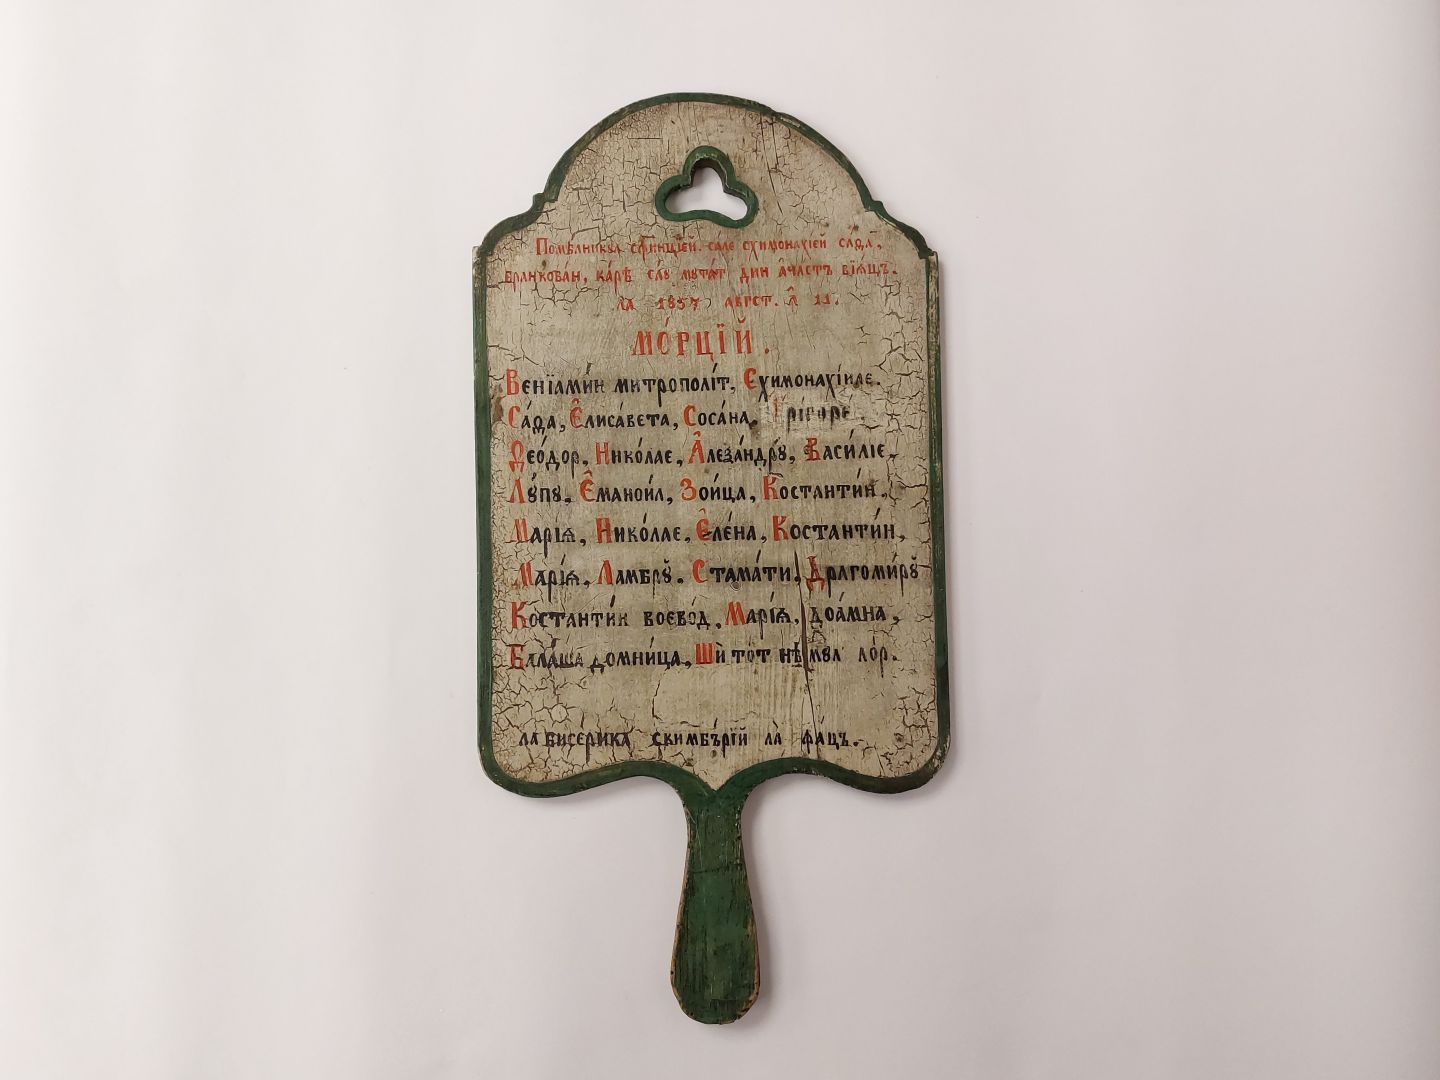 Помѣлникꙋл сфинцїей. сале схимонахїей са́ѳа,
бранкова́н, ка́рѣ са́ꙋ мꙋта́т дин а́част вїѧцъ.
ла 1857 авгст. л̑ 11.
МО́РЦЇЙ.
Венїами́н митрополі́т, Схимонахі́иле.
Са́ѳа, Є̑лиса́вета, Соса́на, Грі́горе.
Ѳео́дор, Нико́лае, А̑леѯа́ндрꙋ, Васи́лїе,
Лꙋ́пꙋ, Є̑манои́л, Зои́ца, Костанти́н,
Марі́ѧ, Нико́лае, Є̑ле́на, Костанти́н,
Марі́ѧ, Ламбрꙋ. Стама́ти, Драгоми́рꙋ
Костанти́н воєво́д, Марі́ѧ, доа́мна,
Бала́ша домни́ца, Ши̇ то́т нѣмꙋл ло́р.
ла бисе́рика скимбъ́рїй ла̀ фа́цъ.